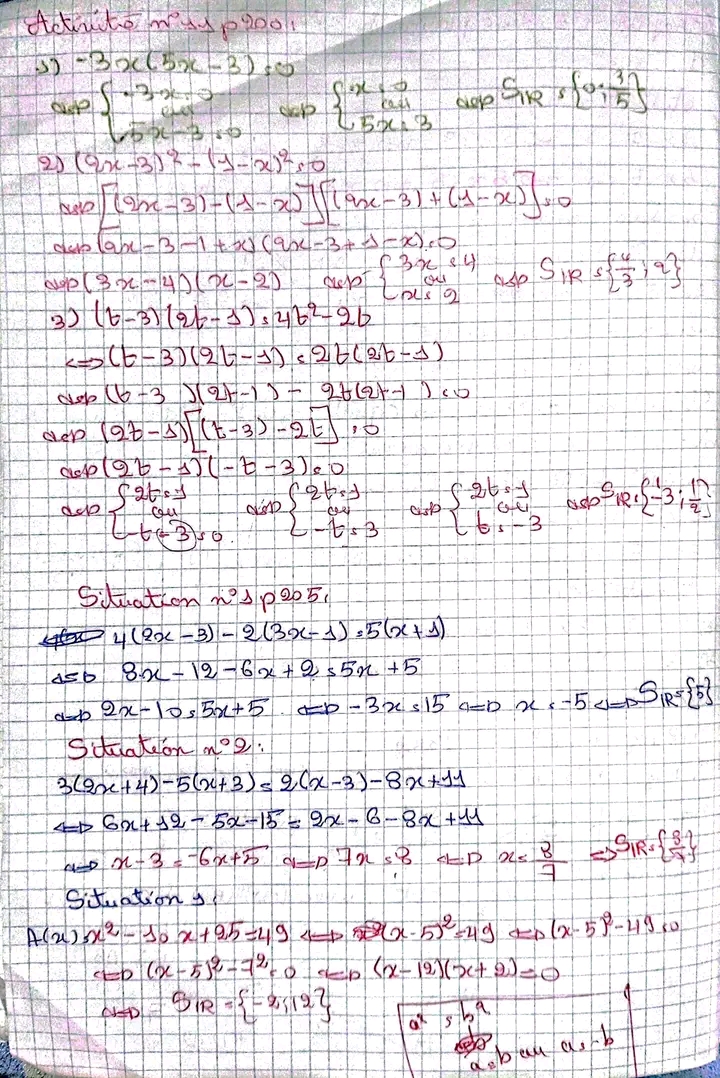 Activité n°11 p200.
1) -3x(5x-3)=0
⇔ { -3x=0 ou 5x-3=0 ⇔ { x=0 ou 5x=3 ⇔ S_IR={0;3/5}
2) (2x-3)²-(1-x)²=0
⇔ [(2x-3)-(1-x)][(2x-3)+(1-x)]=0
⇔ (2x-3-1+x)(2x-3+1-x)=0
⇔ (3x-4)(x-2) ⇔ { 3x=4 ou x=2 ⇔ S_IR={4/3;2}
3) (t-3)(2t-1)=4t²-2t
⇔ (t-3)(2t-1)=2t(2t-1)
⇔ (t-3)(2t-1)-2t(2t-1)=0
⇔ (2t-1)[(t-3)-2t]=0
⇔ (2t-1)(-t-3)=0
⇔ { 2t=1 ou -t-3=0 ⇔ { 2t=1 ou -t=3 ⇔ { 2t=1 ou t=-3 ⇔ S_IR={-3;1/2}
Situation n°1 p205.
4(2x-3)-2(3x-1)=5(x+1)
⇔ 8x-12-6x+2=5x+5
⇔ 2x-10=5x+5 ⇔ -3x=15 ⇔ x=-5 ⇔ S_IR={5}
Situation n°2:
3(2x+4)-5(x+3)=2(x-3)-8x+11
⇔ 6x+12-5x-15=2x-6-8x+11
⇔ x-3=-6x+5 ⇔ 7x=8 ⇔ x=8/7 ⇒ S_IR={8/7}
Situation 1.
A(x)=x²-10x+25=49 ⇔ (x-5)²=49 ⇔ (x-5)²-49=0
⇔ (x-5)²-7²=0 ⇔ (x-12)(x+2)=0
⇔ S_IR={-2;12}
a²=b²
a=b ou a=-b